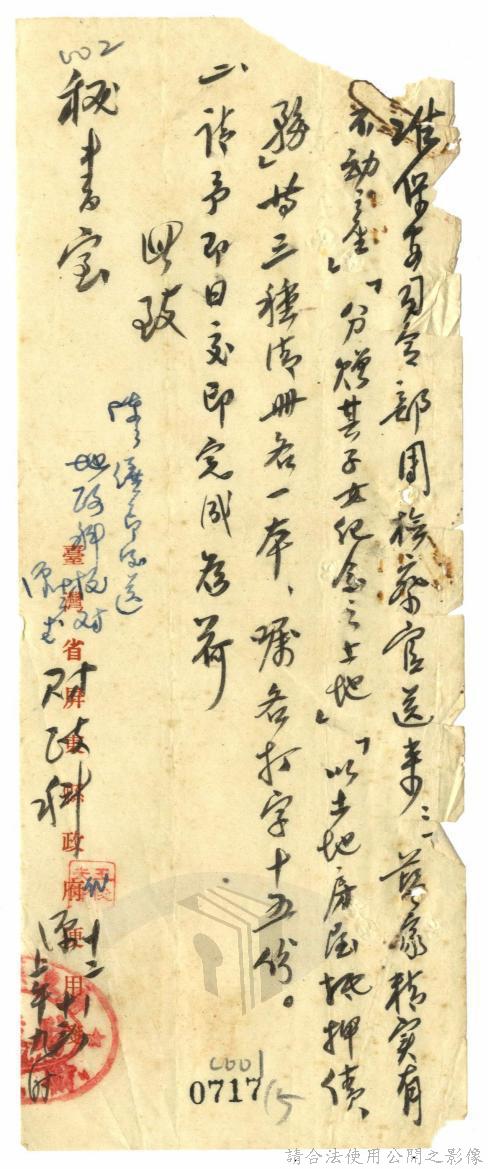 准保安司令部周檢察官送來：「藍家精實有
不動產」「分贈其子女紀念之土地」「以土地房屋抵押債
務」等三種清冊各一本、囑各打字十五份。
二、請予即日交印完成為荷
此致
秘書室
002
陳
地政科校對
臺灣省屏東縣政府便用
財政科
十二
上午九時
0717
請合法使用公開之影像